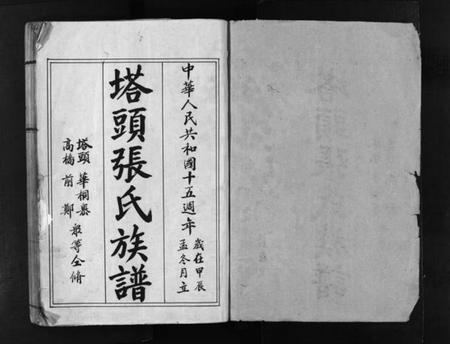 中華人民共和國十五週年
歲在甲辰
孟冬月立
塔頭張氏族譜
塔頭 華桐
高橋前鄭
等仝修